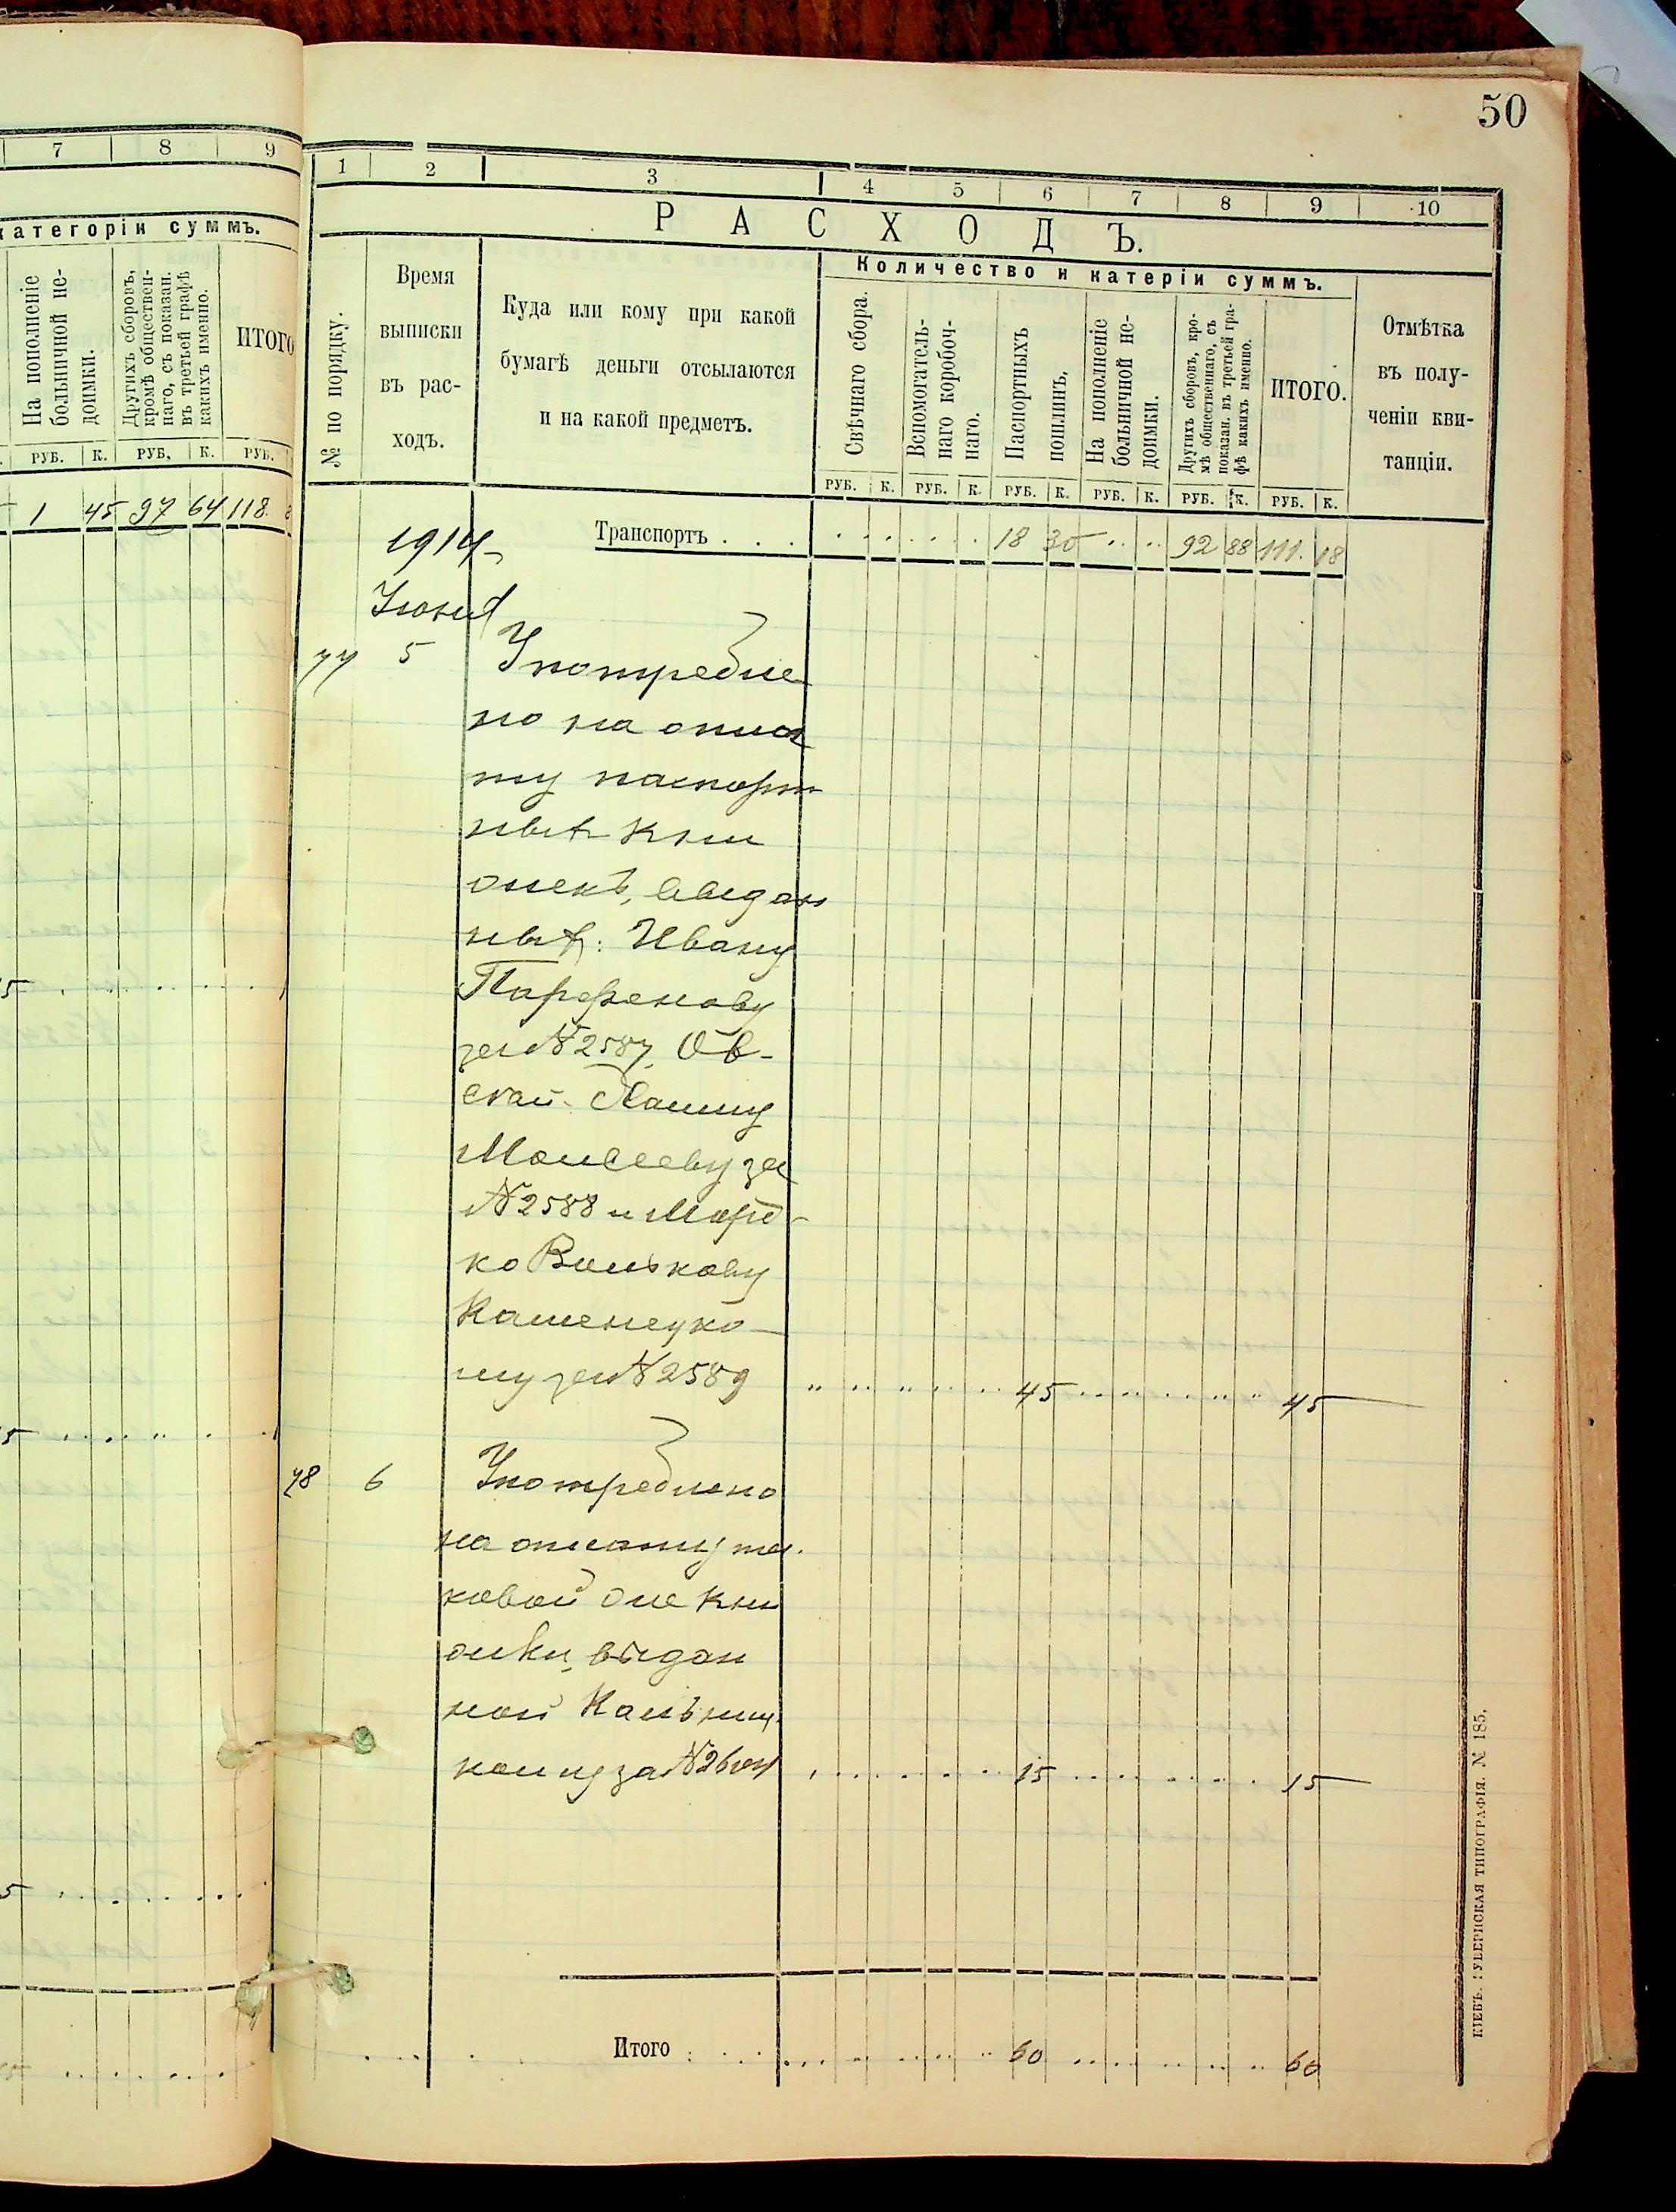 7 8 9
категоріи суммъ.
На пополненіе
больничной не-
доимки.
Другихъ сборовъ,
кромѣ обществен-
наго, съ показан.
въ третьей графѣ
какихъ именно.
ИТОГО
РУБ. К. РУБ. К. РУБ.
1 45 97 64 118
50
1 2 3 4 5 6 7 8 9 10
РАСХОДЪ.
Количество и катеріи суммъ.
№ по порядку.
Время
выписки
въ рас-
ходъ.
Куда или кому при какой
бумагѣ деньги отсылаются
и на какой предметъ.
Свѣчнаго сбора.
Вспомогатель-
наго коробоч-
наго.
Паспортныхъ
пошлинъ,
На пополненіе
больничной не-
доимки.
Другихъ сборовъ, кро-
мѣ общественнаго, съ
показан. въ третьей гра-
фѣ какихъ именно.
ИТОГО.
Отмѣтка
въ полу-
ченіи кви-
танціи.
РУБ. К. РУБ. К. РУБ. К. РУБ. К. РУБ. К. РУБ. К.
Транспортъ . . . 18 30 92 88 111. 18
1914
Іюня
77 5 Употребле
но на опла
ту паспорт
ныхъ кни
жекъ, выдан
ныхъ: Ивану
Парфенову
за №2587, Ов-
Моисееву за
№2588 и Морд-
ко Волькову
Каменецко-
му за №2589 45 45
78 6 Употреблено
на оплату та-
ковой же кни
жки, выдан
ной Кальниц-
кому за № 15 15
Итого 60 60
КІЕВЪ. ГУБЕРНСКАЯ ТИПОГРАФІЯ. № 185.